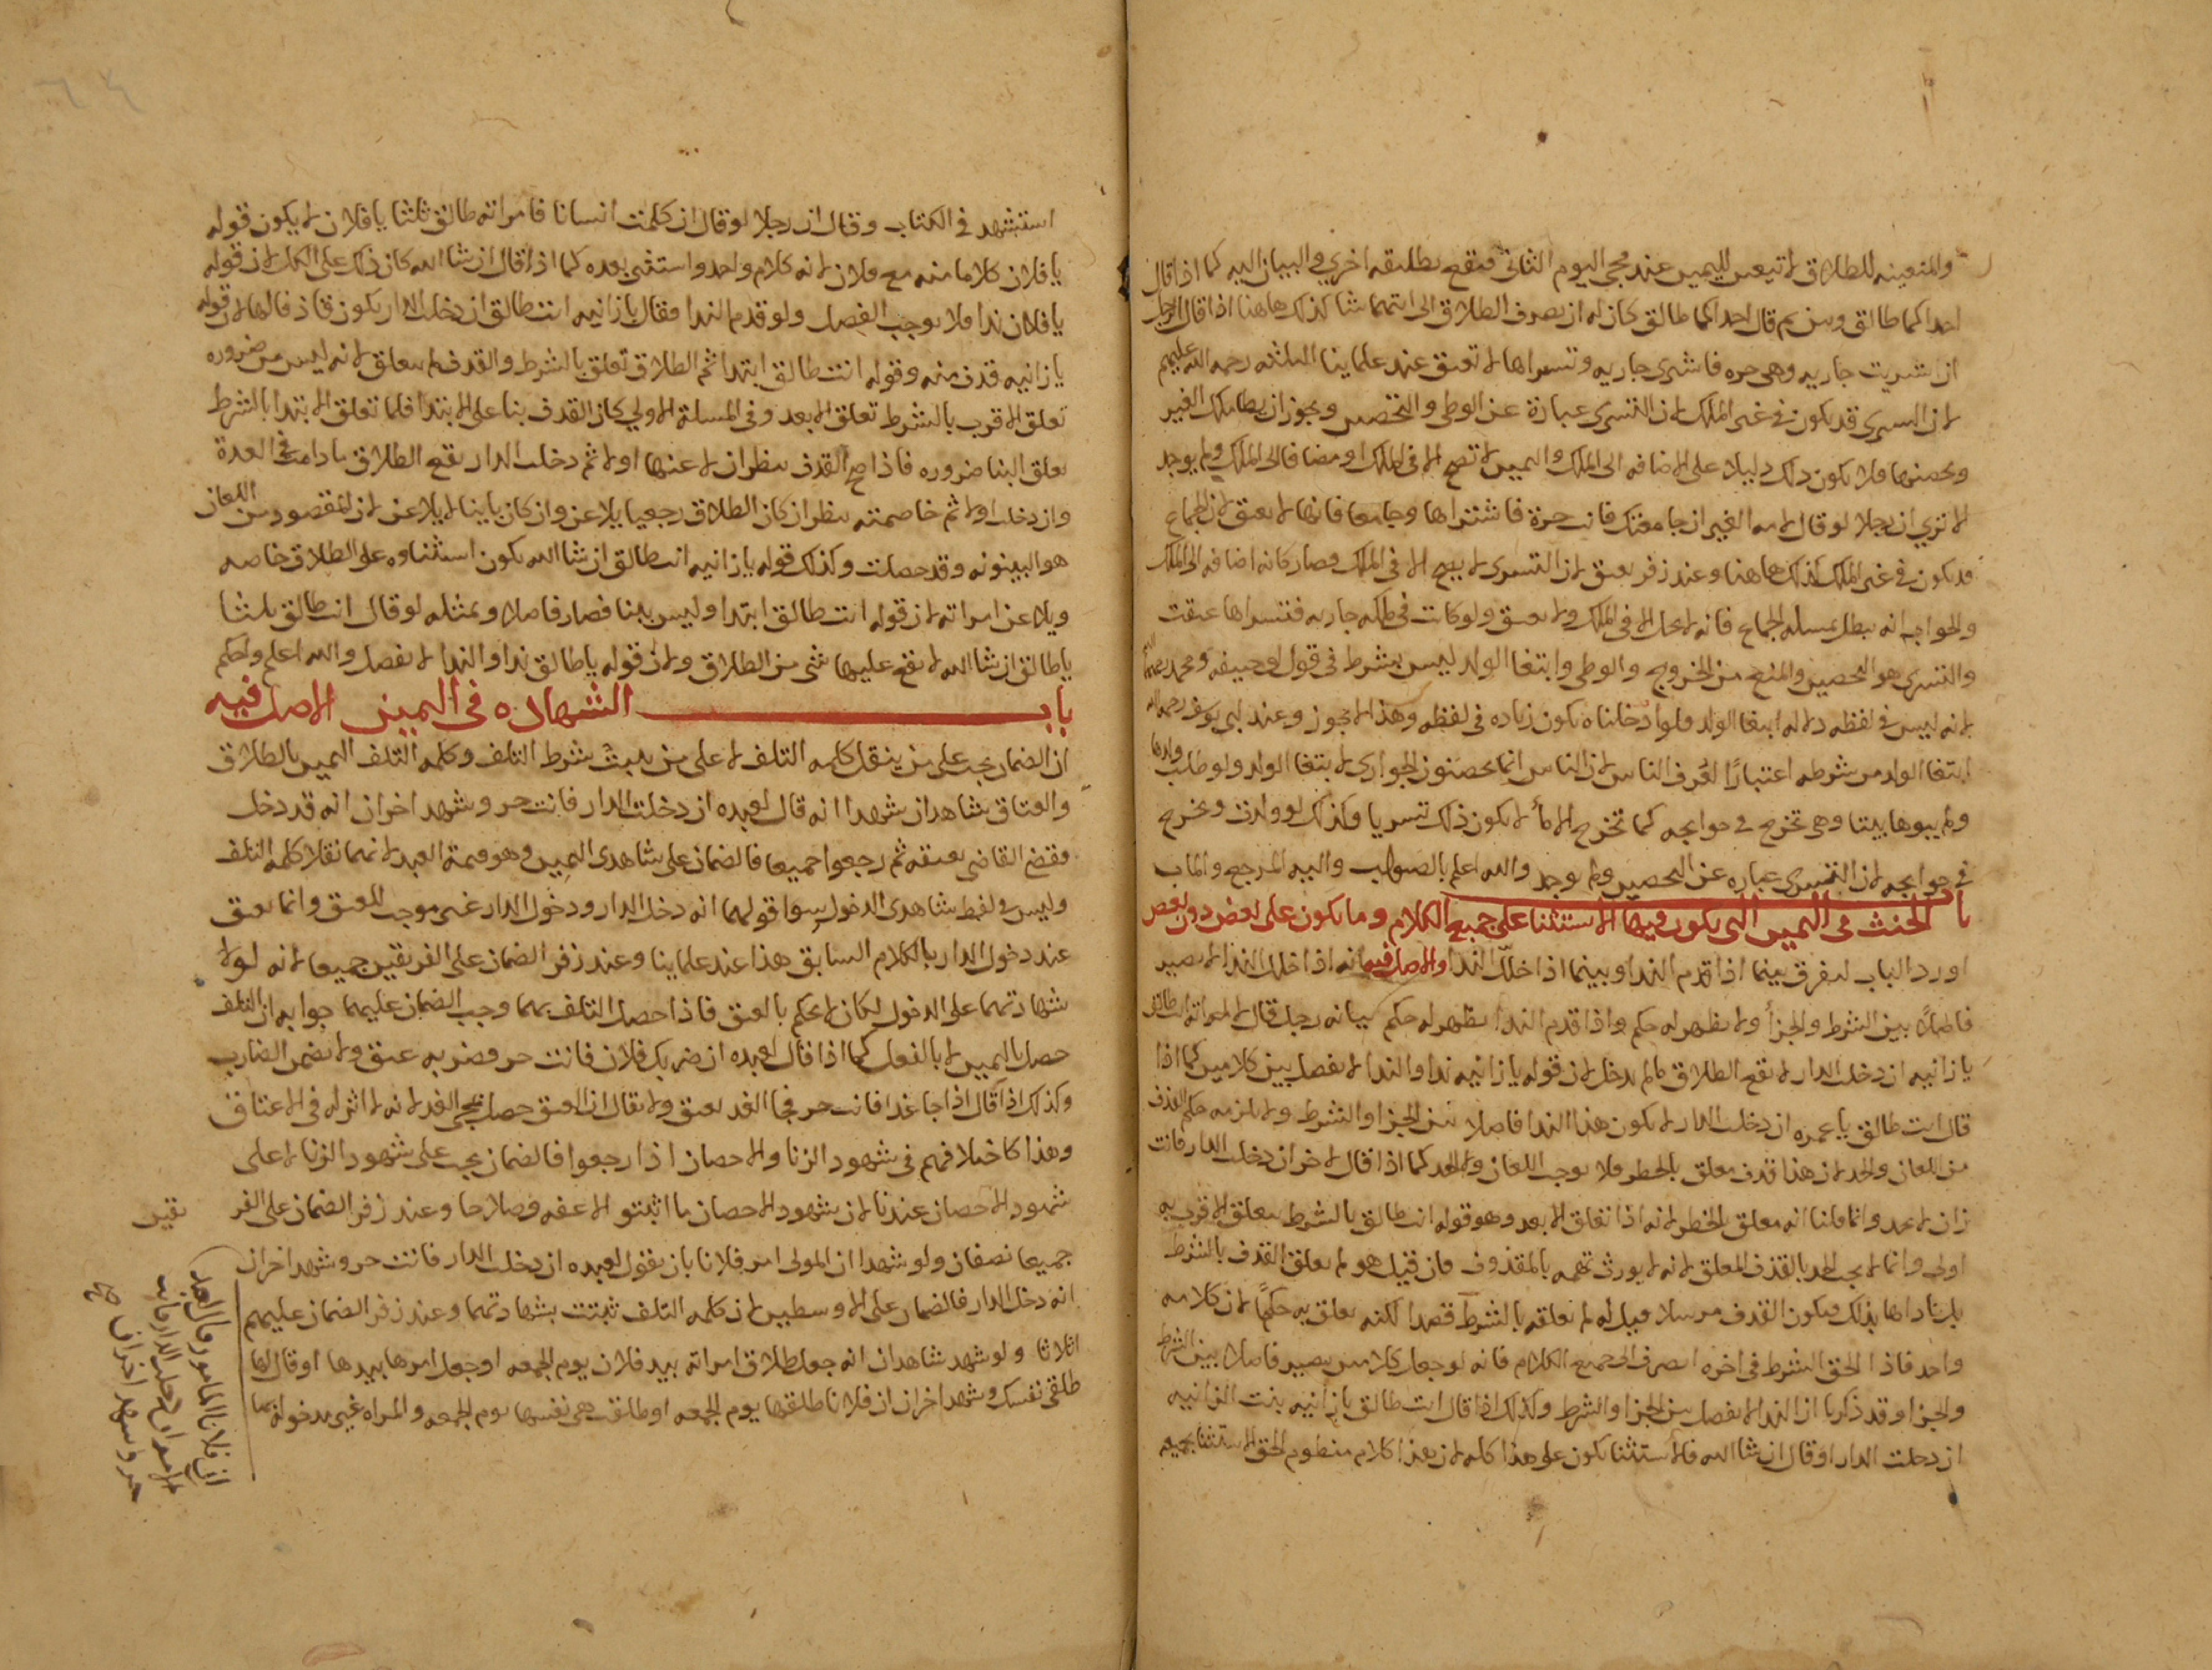 والمتعينه للطلاق لا تتعين لليمين عند مجي اليوم الثاني فيقع تطليقه اخري والبيان اليه كما اذا قال
احداكما طالق ومن ثم قال احداكما طالق كان له ان يصرف الطلاق الى ايتهما شا كذلك هاهنا اذا قال الرجل
ان اشتريت جاريه وهى حره فاشترى جاريه وتسراها لا تعتق عند علماينا الثلثه رحمه الله عليهم
لان التسرى قد يكون فى غير الملك لان التسرى عبارة عن الوطى والتحصين ويجوز ان يطا ملك الغير
ويحصنها فلا يكون ذلك دليلا على الاضافه الى الملك واليمين لا تصح الا فى الملك او مضافا الى الملك ولم يوجد
الا تري ان رجلا لو قال لامه الغير ان جامعتك فانت حرة فاشتراها وجامعها فانها لا تعتق لان الجماع
قد يكون فى غير الملك كذلك هاهنا وعند زفر يعتق لان التسرى لا يصح الا فى الملك وصار كانه اضافه الى الملك
والجواب انه يبطل بمسله الجماع فانه لا يحل الا فى الملك ولا يعتق ولو كانت فى ملكه جاريه فتسراها عتقت
والتسرى هو التحصين والمنع من الخروج والوطى وابتغا الولد ليس بشرط فى قول ابى حنيفه ومحمد رحمهما الله
لانه ليس فى لفظه دلاله ابتغا الولد فلو ادخلناه يكون زياده فى لفظه وهذا لا يجوز وعند ابى يوسف رحمه الله
ابتغا الولد من شرطه اعتبارًا لعُرف الناس لان الناس انما يحصنون الجوارى لابتغا الولد ولو طلب ولدها
ولم يبوها بيتا وهى تخرج فى حوايجه كما تخرج الامأ لا يكون ذلك تسريا وكذلك لو ولدت وتخرج
فى حوايجه لان التسرى عباره عن التحصين ولم يوجد والله اعلم بالصواب واليه المرجع والماب
باب الحنث فى اليمين التى يكون فيها الاستثنا على جميع الكلام وما يكون على بعض دون بعض
اورد الباب ليفرق بينما اذا قدم الندا وبينما اذا خلّل الندا والاصل فيه انه اذا خلل الندا لا يصير
فاصلاً بين الشرط والجزأ ولا يظهر له حكم واذا قدم الندا يظهر له حكم بيانه رجل قال لامراته انت طالق
يا زانيه ان دخلت الدار لا يقع الطلاق مالم يدخل لان قوله يا زانيه ندا والندا لا يفصل بين كلامين كما اذا
قال انت طالق يا عمره ان دخلت الدار لا يكون هذا الندا فاصلا بين الجزا والشرط ولا يلزمه حكم القذف
من اللعان والحد لان هذا قذف معلق بالخطر فلا يوجب اللعان ولا الحد كما اذا قال لاخر ان دخلت الدار فانت
زان لا يحد وانما قلنا انه معلق بالخطر لانه اذا تعلق الابعد وهو قوله انت طالق بالشرط يتعلق الاقرب به
اولى وانما لا يجب الحد بالقذف المعلق لانه لا يورث تهمه بالمقذوف فان قيل هو لم يعلق القذف بالشرط
بل ناداها بذلك فيكون القذف مرسلا قيل له لم يعلقه بالشرط قصدا لكنه يعلق به حكمًا لان كلامه
واحد فاذا الحق الشرط فى اخره انصرف الى جميع الكلام فانه لو جعل كلامين يصير فاصلا بين الشرط
والجزا وقد ذكرنا ان الندا لا يفصل بين الجزا والشرط وكذلك اذا قال انت طالق يا زانيه بنت الزانيه
ان دخلت الدار او قال ان شا الله فالاستثنا يكون على هذا كله لان هذا كلام منظوم الحق الاستثنا بجميعه
استشهد فى الكتاب وقال ان رجلا لو قال ان كلمت انسانا فامراته طالق ثلثا يا فلان لا يكون قوله
يا فلان كلاما منه مع فلان لانه كلام واحد واستثنى بعده كما اذا قال ان شا الله كان ذلك على الكل لان قوله
يا فلان ندا فلا يوجب الفصل ولو قدم الندا فقال يا زانيه انت طالق ان دخلت الدار يكون قاذفا لها لان قوله
يا زانيه قذف منه وقوله انت طالق ابتدا ثم الطلاق تعلق بالشرط والقذف لم يتعلق لانه ليس من ضروره
تعلق الاقرب بالشرط تعلق الابعد وفى المسلة الاولي كان القذف بنا على الابتدا فلما تعلق الابتدا بالشرط
تعلق البنا ضروره فاذا صح القذف ينظر ان لاعنها اولا ثم دخلت الدار يقع الطلاق ما دامت فى العدة
وان دخلت اولا ثم خاصمته ينظر ان كان الطلاق رجعيا يلاعن وان كان باينا لا يلاعن لان المقصود من اللعان
هو البينونه وقد حصلت وكذلك قوله يا زانيه انت طالق ان شا الله يكون استثناوه على الطلاق خاصه
ويلاعن امراته لان قوله انت طالق ابتدا وليس ببنا فصار فاصلا وبمثله لو قال انت طالق ثلثا
يا طالق ان شا الله لا يقع عليها شى من الطلاق ولان قوله يا طالق ندا والندا لا يفصل والله اعلم واحكم
باب الشهاده فى اليمين الاصل فيه
ان الضمان يجب على من ينقل كلمه التلف لا على من يثبث شرط التلف وكلمه التلف اليمين بالطلاق
والعتاق شاهدان شهدا انه قال لعبده ان دخلت الدار فانت حر وشهد اخران انه قد دخل
فقضى القاضى بعتقه ثم رجعوا جميعا فالضمان على شاهدى اليمين وهو قيمة العبد لانهما نقلا كلمه التلف
وليس فى لفظ شاهدى الدخول سوا قولهما انه دخل الدار ودخول الدار غير موجب للعتق وانما يعتق
عند دخول الدار بالكلام السابق هذا عند علماينا وعند زفر الضمان على الفريقين جميعا لانه لولا
شهادتهما على الدخول لكان لا يحكم بالعتق فاذا حصل التلف بهما وجب الضمان عليهما جوابه ان التلف
حصل باليمين لا بالفعل كما اذا قال لعبده ان ضربك فلان فانت حر فضربه عتق ولا يضمن الضارب
وكذلك اذا قال اذا جا غدا فانت حر فجا الغد يعتق ولا يقال ان العتق حصل بمجى الغد لانه لا اثر له فى الاعتاق
وهذا كاختلافهم فى شهود الزنا والاحصان اذا رجعوا فالضمان يجب على شهود الزنا لا على
شهود الاحصان عندنا لان شهود الاحصان ما اثبتوا الا عفه وصلاحا وعند زفر الضمان على الفر يقين
جميعا نصفان ولو شهدا ان المولى امر فلانا بان يقول لعبده ان دخلت الدار فانت حر وشهد اخران
انه دخل الدار فالضمان على الاوسطين لان كلمه التلف ثبتت بشهادتهما وعند زفر الضمان عليهم
اثلاثا ولو شهد شاهدان انه جعل طلاق امراته بيد فلان يوم الجمعه او جعل امرها بيدها او قال لها
طلقى نفسك وشهد اخران ان فلانا طلقها يوم الجمعه او طلقت هى نفسها يوم الجمعه والمراه غير مدخول بها
ان فلانا المامور قال لعبد
الامر ان دخلت الدار فانت
حر وشهد اخران صح